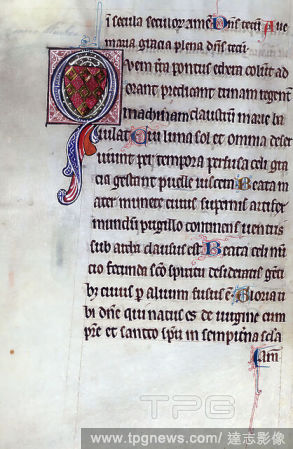 in secula seculor amē Dn̄s tecū Aue
maria gracia plena dn̄s tecū
Quem t̄ra pontus ethera colunt ad
orant predicant trinam regentem
machinam claustrum marie ba
iulat Cui luna sol et omnia deser
uiunt per tempora perfusa celi gra
cia gestant puelle uiscera Beata m
ater munere cuius supernus artifex
mundum pugillo continens uentris
sub archa clausus est Beata celi nun
cio fecunda sc̄o spiritu desideratus genti
bꝫ cuius p aluum fusus ē Gloria ti
bi dn̄e qui natus es de uirgine cum
pr̄e et sancto sp̄u in sempiterna secla
am̄
TPG
www.tpgnews.com / 達志影像